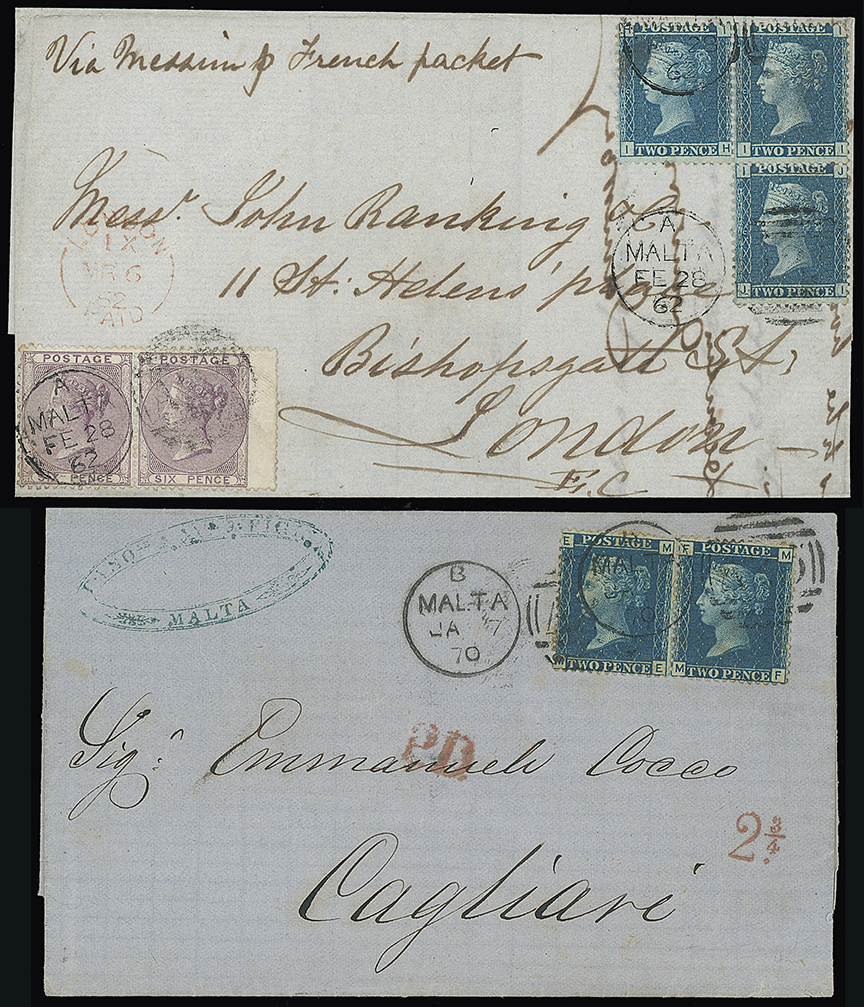 Via Messina p French packet
POSTAGE POSTAGE
28
62
I TWO PENCE H I TWO PENCE I
POSTAGE
J TWO PENCE I
Messrs. John Ranking & Co
11 St: Helens' place
Bishopsgate St,
London
E.C
LONDON
MR 6
62
PAID
A
MALTA
FE 28
62
POSTAGE POSTAGE
A
MALTA
FE 28
62
SIX PENCE SIX PENCE
MALTA
B
MALTA
JA 7
70
E POSTAGE M F POSTAGE M
MALTA
70
M TWO PENCE E M TWO PENCE F
P.D.
Sig.r Emmanuele Cocco
2 3/4
Cagliari